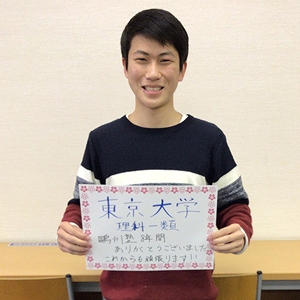 東京大学
理科一類
鴨川塾 8年間
ありがとうございました
これからも頑張ります!!